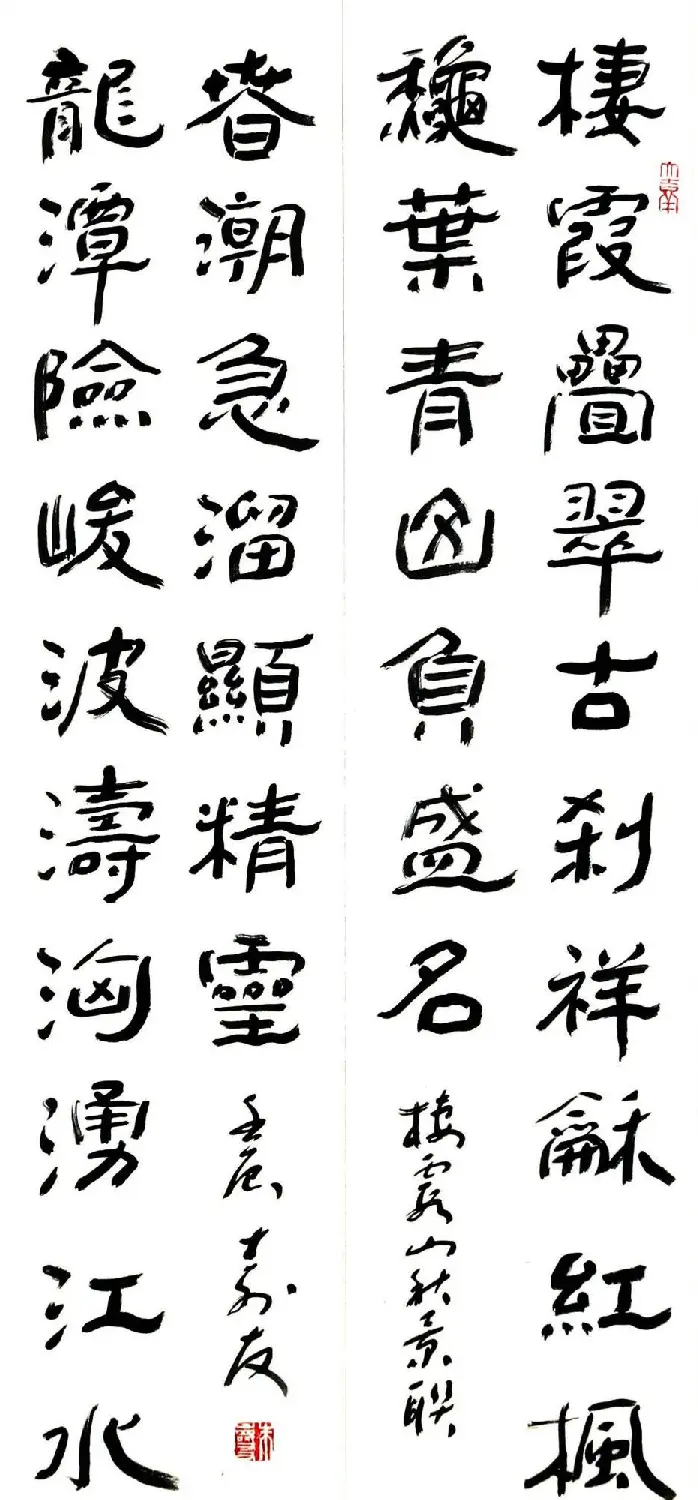 棲霞疊翠古刹祥龢紅楓
龝葉青山負盛名
棲霞山秋景联
龍潭險峻波濤洶湧江水
春潮急溜顯精靈
壬辰 寿友